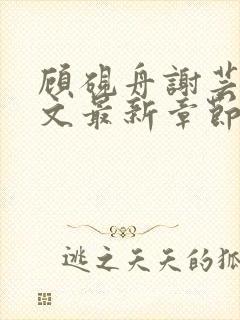 顾砚舟謝芸
文最新章節
逃之夭夭的狐